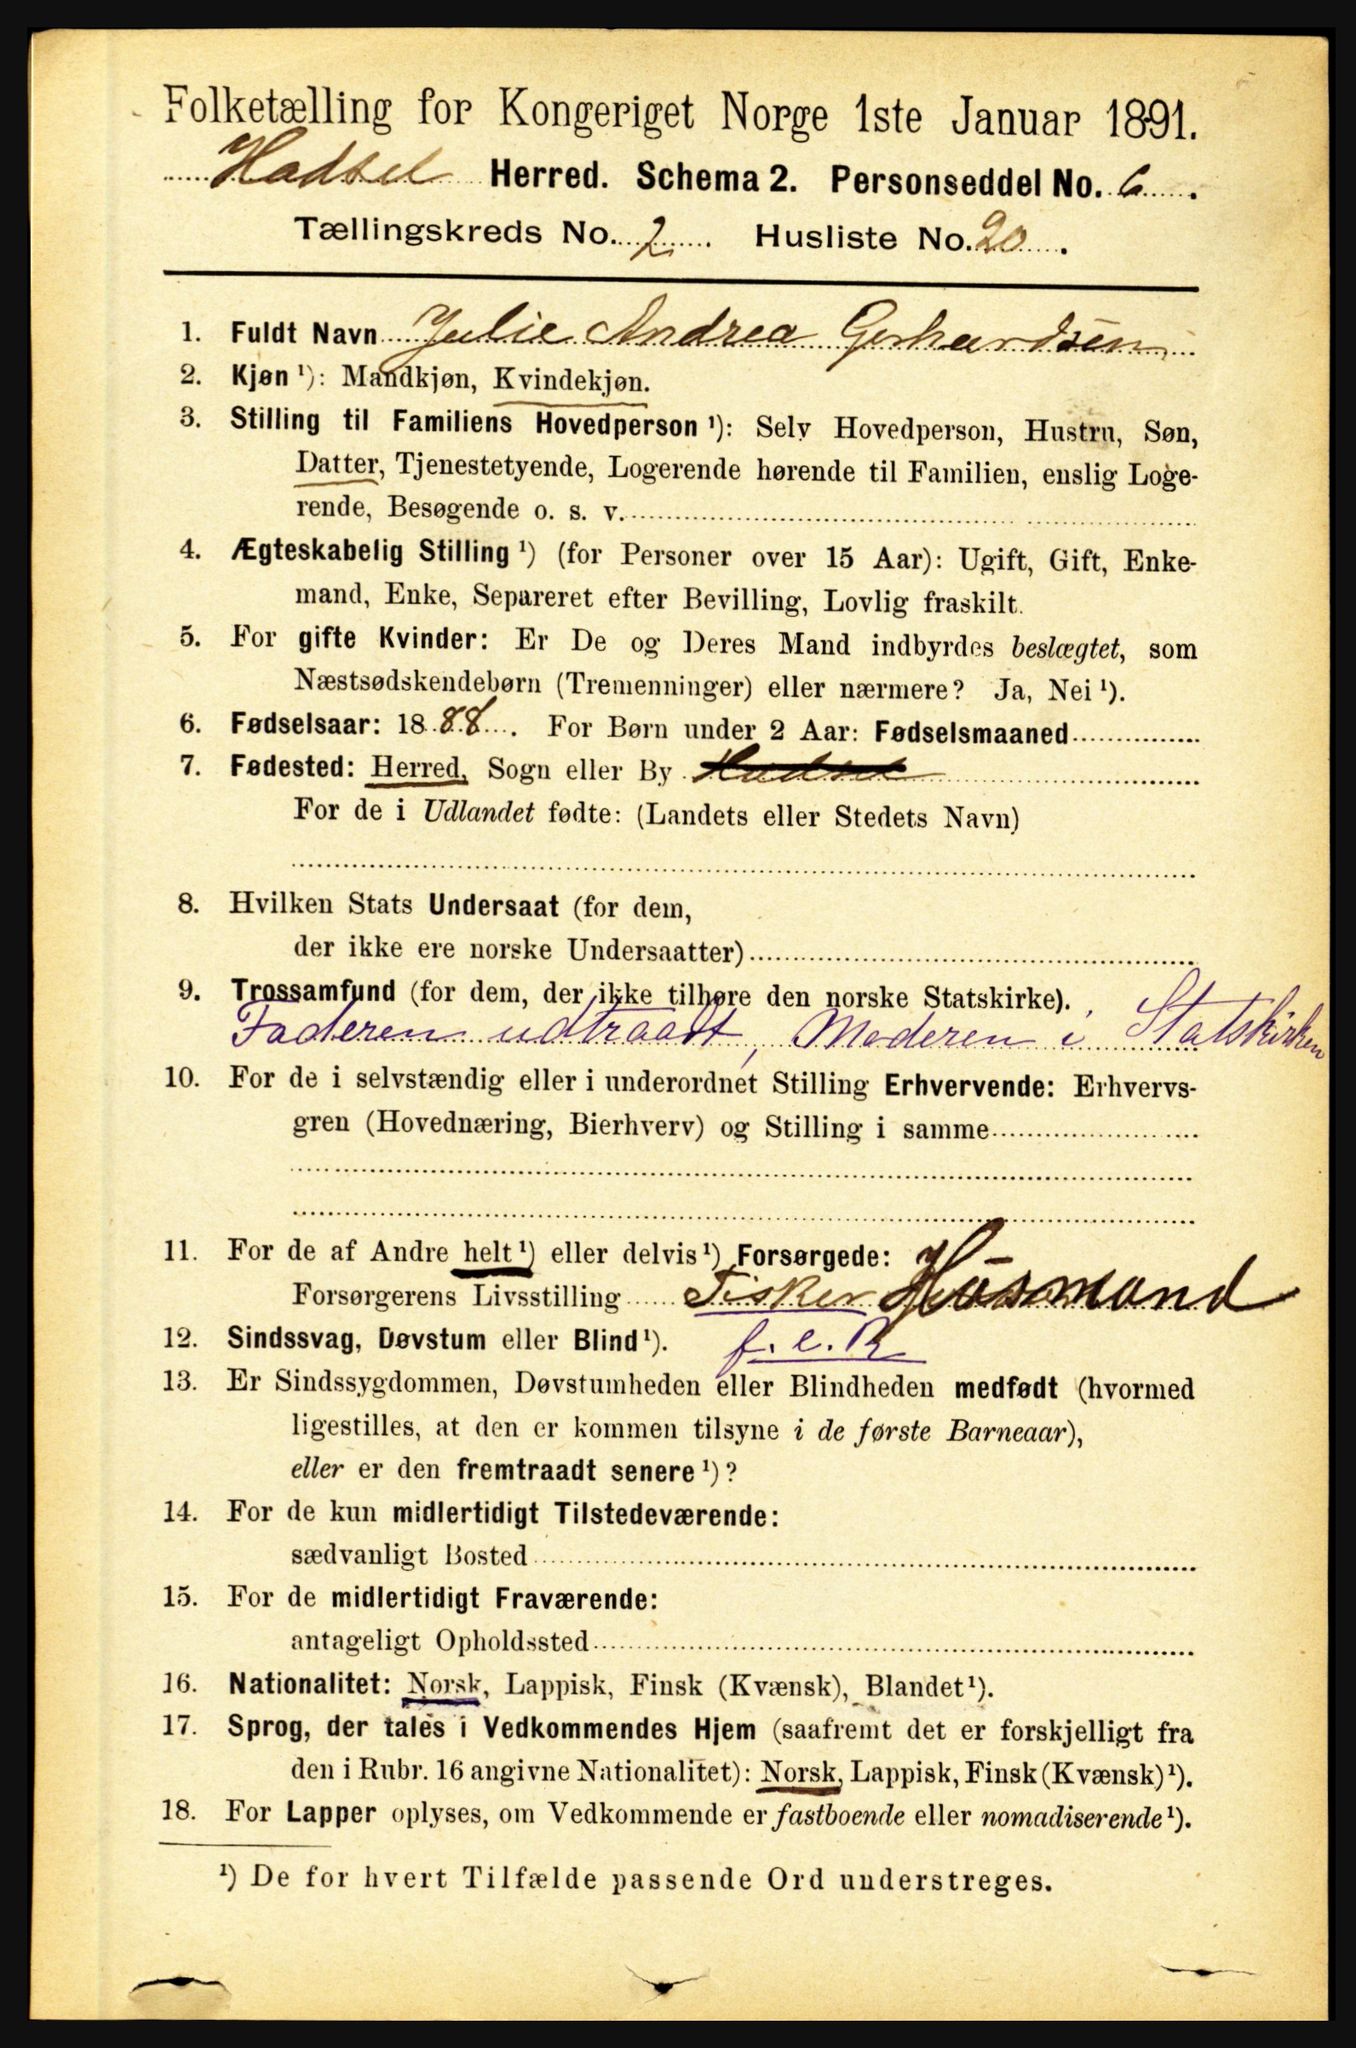 Folketælling for Kongeriget Norge 1ste Januar 1891.
Hadsel Herred. Schema 2. Personseddel No. 6.
Tællingskreds No. 2. Husliste No. 20.
1. Fuldt Navn Julie Andrea Gerhardsen
2. Kjøn ¹): Mandkjøn, Kvindekjøn.
3. Stilling til Familiens Hovedperson ¹): Selv Hovedperson, Hustru, Søn,
Datter, Tjenestetyende, Logerende hørende til Familien, enslig Loge-
rende, Besøgende o. s. v.
4. Ægteskabelig Stilling ¹) (for Personer over 15 Aar): Ugift, Gift, Enke-
mand, Enke, Separeret efter Bevilling, Lovlig fraskilt.
5. For gifte Kvinder: Er De og Deres Mand indbyrdes beslægtet, som
Næstsødskendebørn (Tremenninger) eller nærmere? Ja, Nei ¹).
6. Fødselsaar: 1888. For Børn under 2 Aar: Fødselsmaaned
7. Fødested: Herred, Sogn eller By Hadsel
For de i Udlandet fødte: (Landets eller Stedets Navn)
8. Hvilken Stats Undersaat (for dem,
der ikke ere norske Undersaatter)
9. Trossamfund (for dem, der ikke tilhøre den norske Statskirke).
Faderen udtraadt, Moderen i Statskirken
10. For de i selvstændig eller i underordnet Stilling Erhvervende: Erhvervs-
gren (Hovednæring, Bierhverv) og Stilling i samme
11. For de af Andre helt ¹) eller delvis ¹) Forsørgede:
Forsørgerens Livsstilling Fisker Husmand
12. Sindssvag, Døvstum eller Blind ¹). f. e. R
13. Er Sindssygdommen, Døvstumheden eller Blindheden medfødt (hvormed
ligestilles, at den er kommen tilsyne i de første Barneaar),
eller er den fremtraadt senere ¹)?
14. For de kun midlertidigt Tilstedeværende:
sædvanligt Bosted
15. For de midlertidigt Fraværende:
antageligt Opholdssted
16. Nationalitet: Norsk, Lappisk, Finsk (Kvænsk), Blandet ¹).
17. Sprog, der tales i Vedkommendes Hjem (saafremt det er forskjelligt fra
den i Rubr. 16 angivne Nationalitet): Norsk, Lappisk, Finsk (Kvænsk) ¹).
18. For Lapper oplyses, om Vedkommende er fastboende eller nomadiserende ¹).
¹) De for hvert Tilfælde passende Ord understreges.